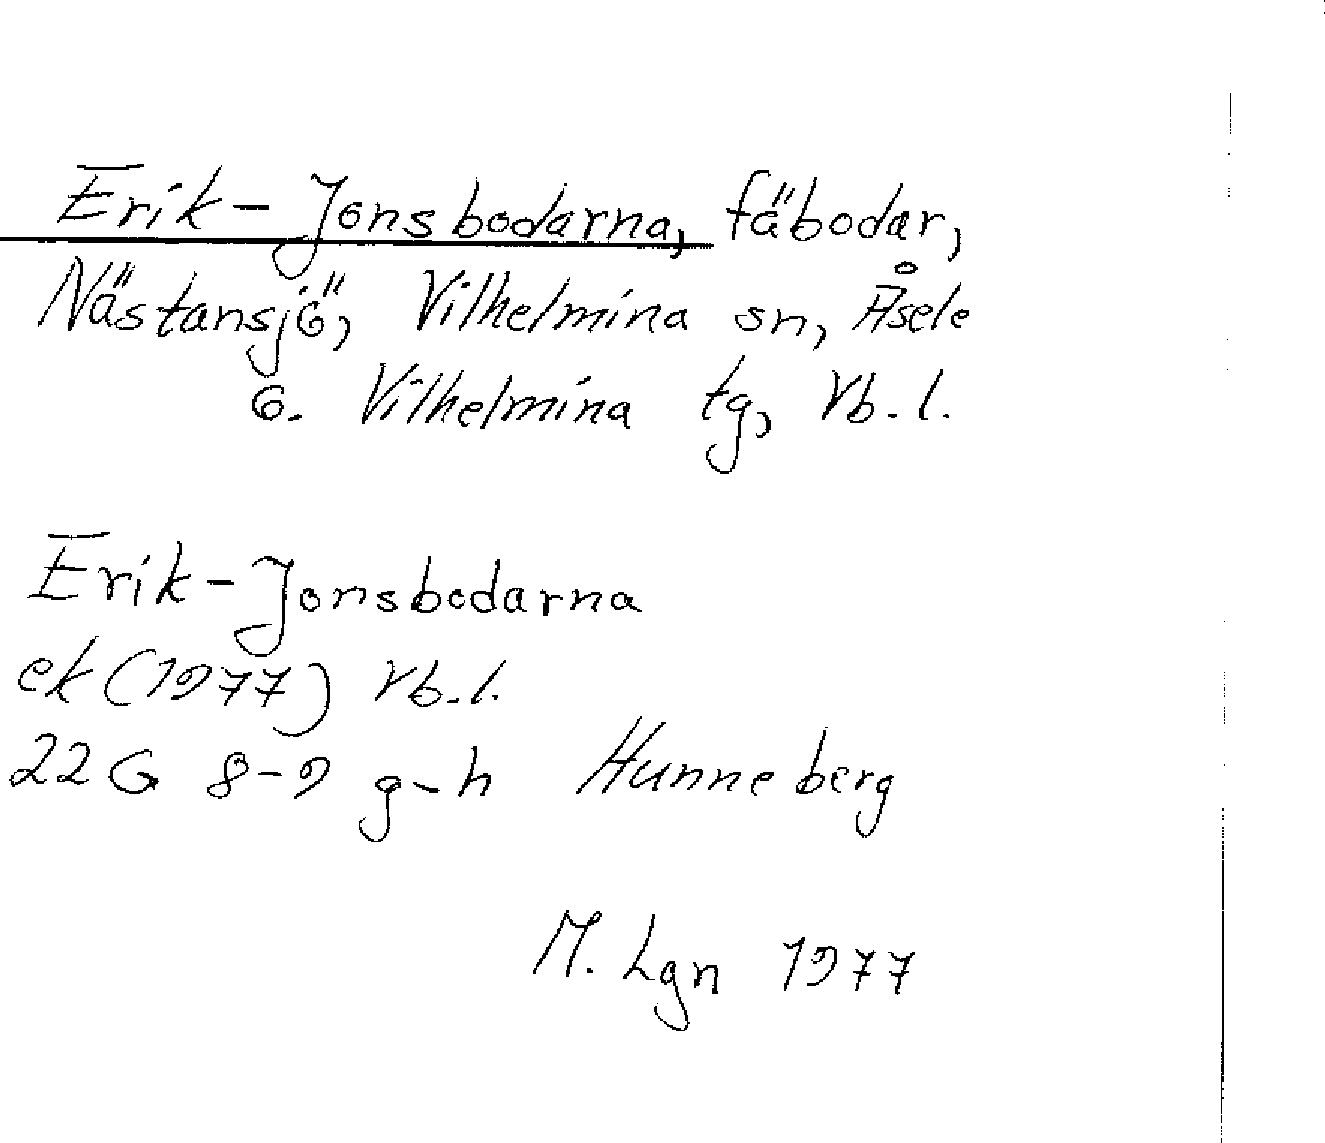 Erik-Jonsbodarna, fäbodar,
Nästansjö, Vilhelmina sn, Åsele
o. Vilhelmina tg, Vb. l.
Erik-Jonsbodarna
ek (1977) Vb. l.
22 G 8-9 g-h Hunneberg
M. Lgn 1977